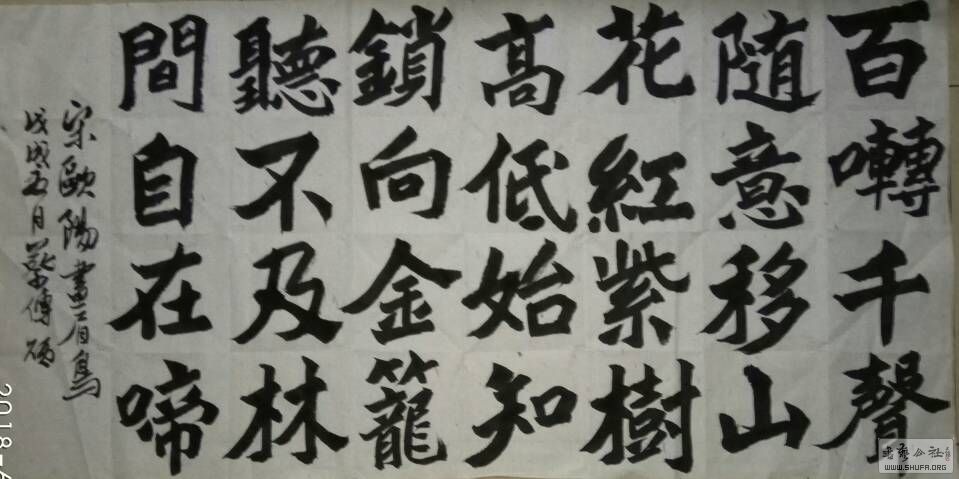 百囀千聲
随意移山
花紅紫樹
高低始知
鎖向金籠
聽不及林
間自在啼
宋歐陽 畫眉鳥
戊戌五月
2018-
书艺公社
WWW.SHUFA.ORG